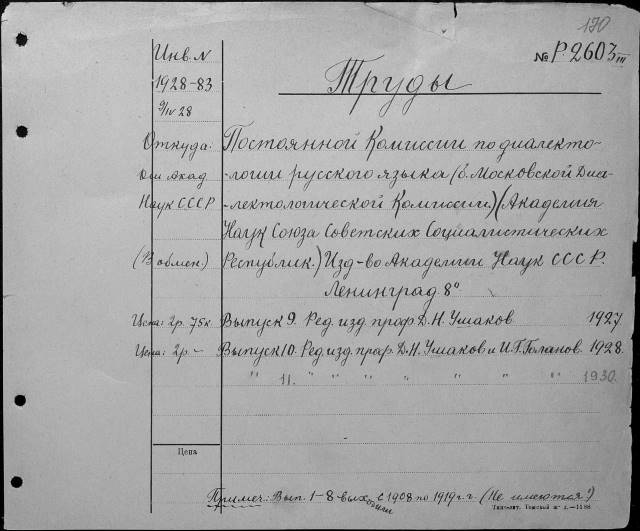 170
№ Р.2603 III
Труды
Инв. N
1928-83
9/IV 28
Откуда:
Акад
Наук СССР
(В обмен.)
Постоянной Комиссии по диалекто-
-логии русского языка (б. Московской Диа-
-лектологической Комиссии) (Академия
Наук Союза Советских Социалистических
Республик.) Изд-во Академии Наук СССР.
Ленинград 8°
Цена: 2р. 75к. Выпуск 9. Ред. изд. проф. Д.Н. Ушаков 1927
Цена: 2р – Выпуск 10. Ред. изд. проф. Д.Н. Ушаков и И.Г. Голанов. 1928.
" 11. " " " " " " " 1930.
Цена
Примеч: Вып. 1-8 выходили с 1908 по 1919 г.г. (Не имеются!)
Типо-лит. Томской ж д.—1188